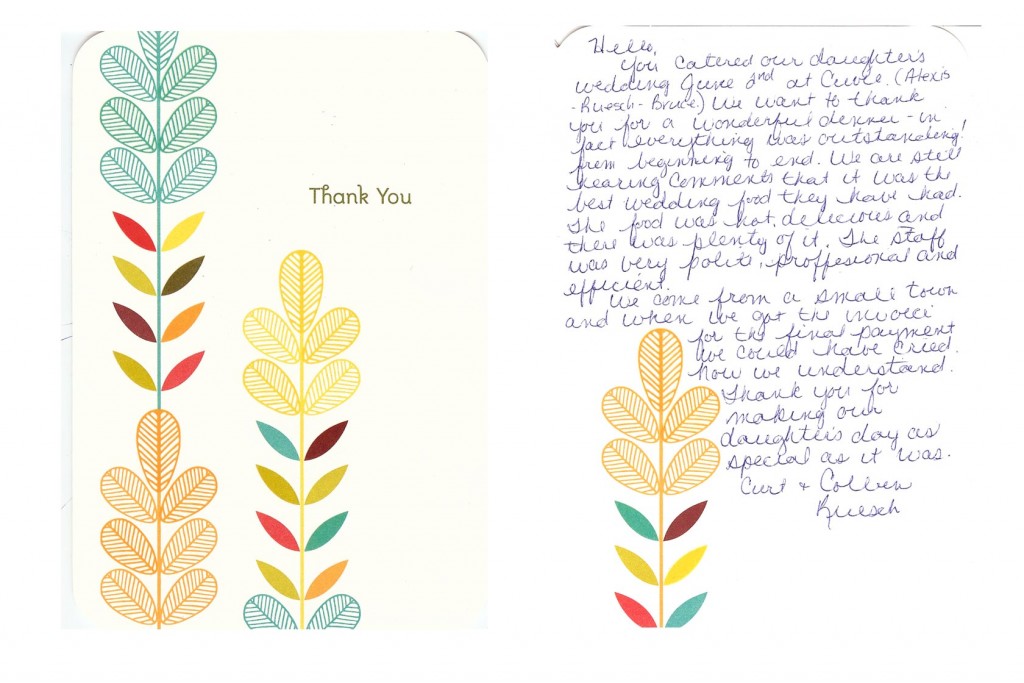 Thank You
Hello,
You catered our daughter's
wedding June 2nd at Cuvee. (Alexis
-Ruesch-Bruce.) We want to thank
you for a wonderful dinner - in
fact everything was outstanding!
from beginning to end. We are still
hearing comments that it was the
best wedding food they have had.
The food was hot, delicious and
there was plenty of it. The staff
was very polite, proffesional and
efficient.
We come from a small town
and when we got the invoice
for the final payment
we could have cried.
Now we understand.
Thank you for
making our
daughter's day as
special as it was.
Curt + Colleen
Ruesch